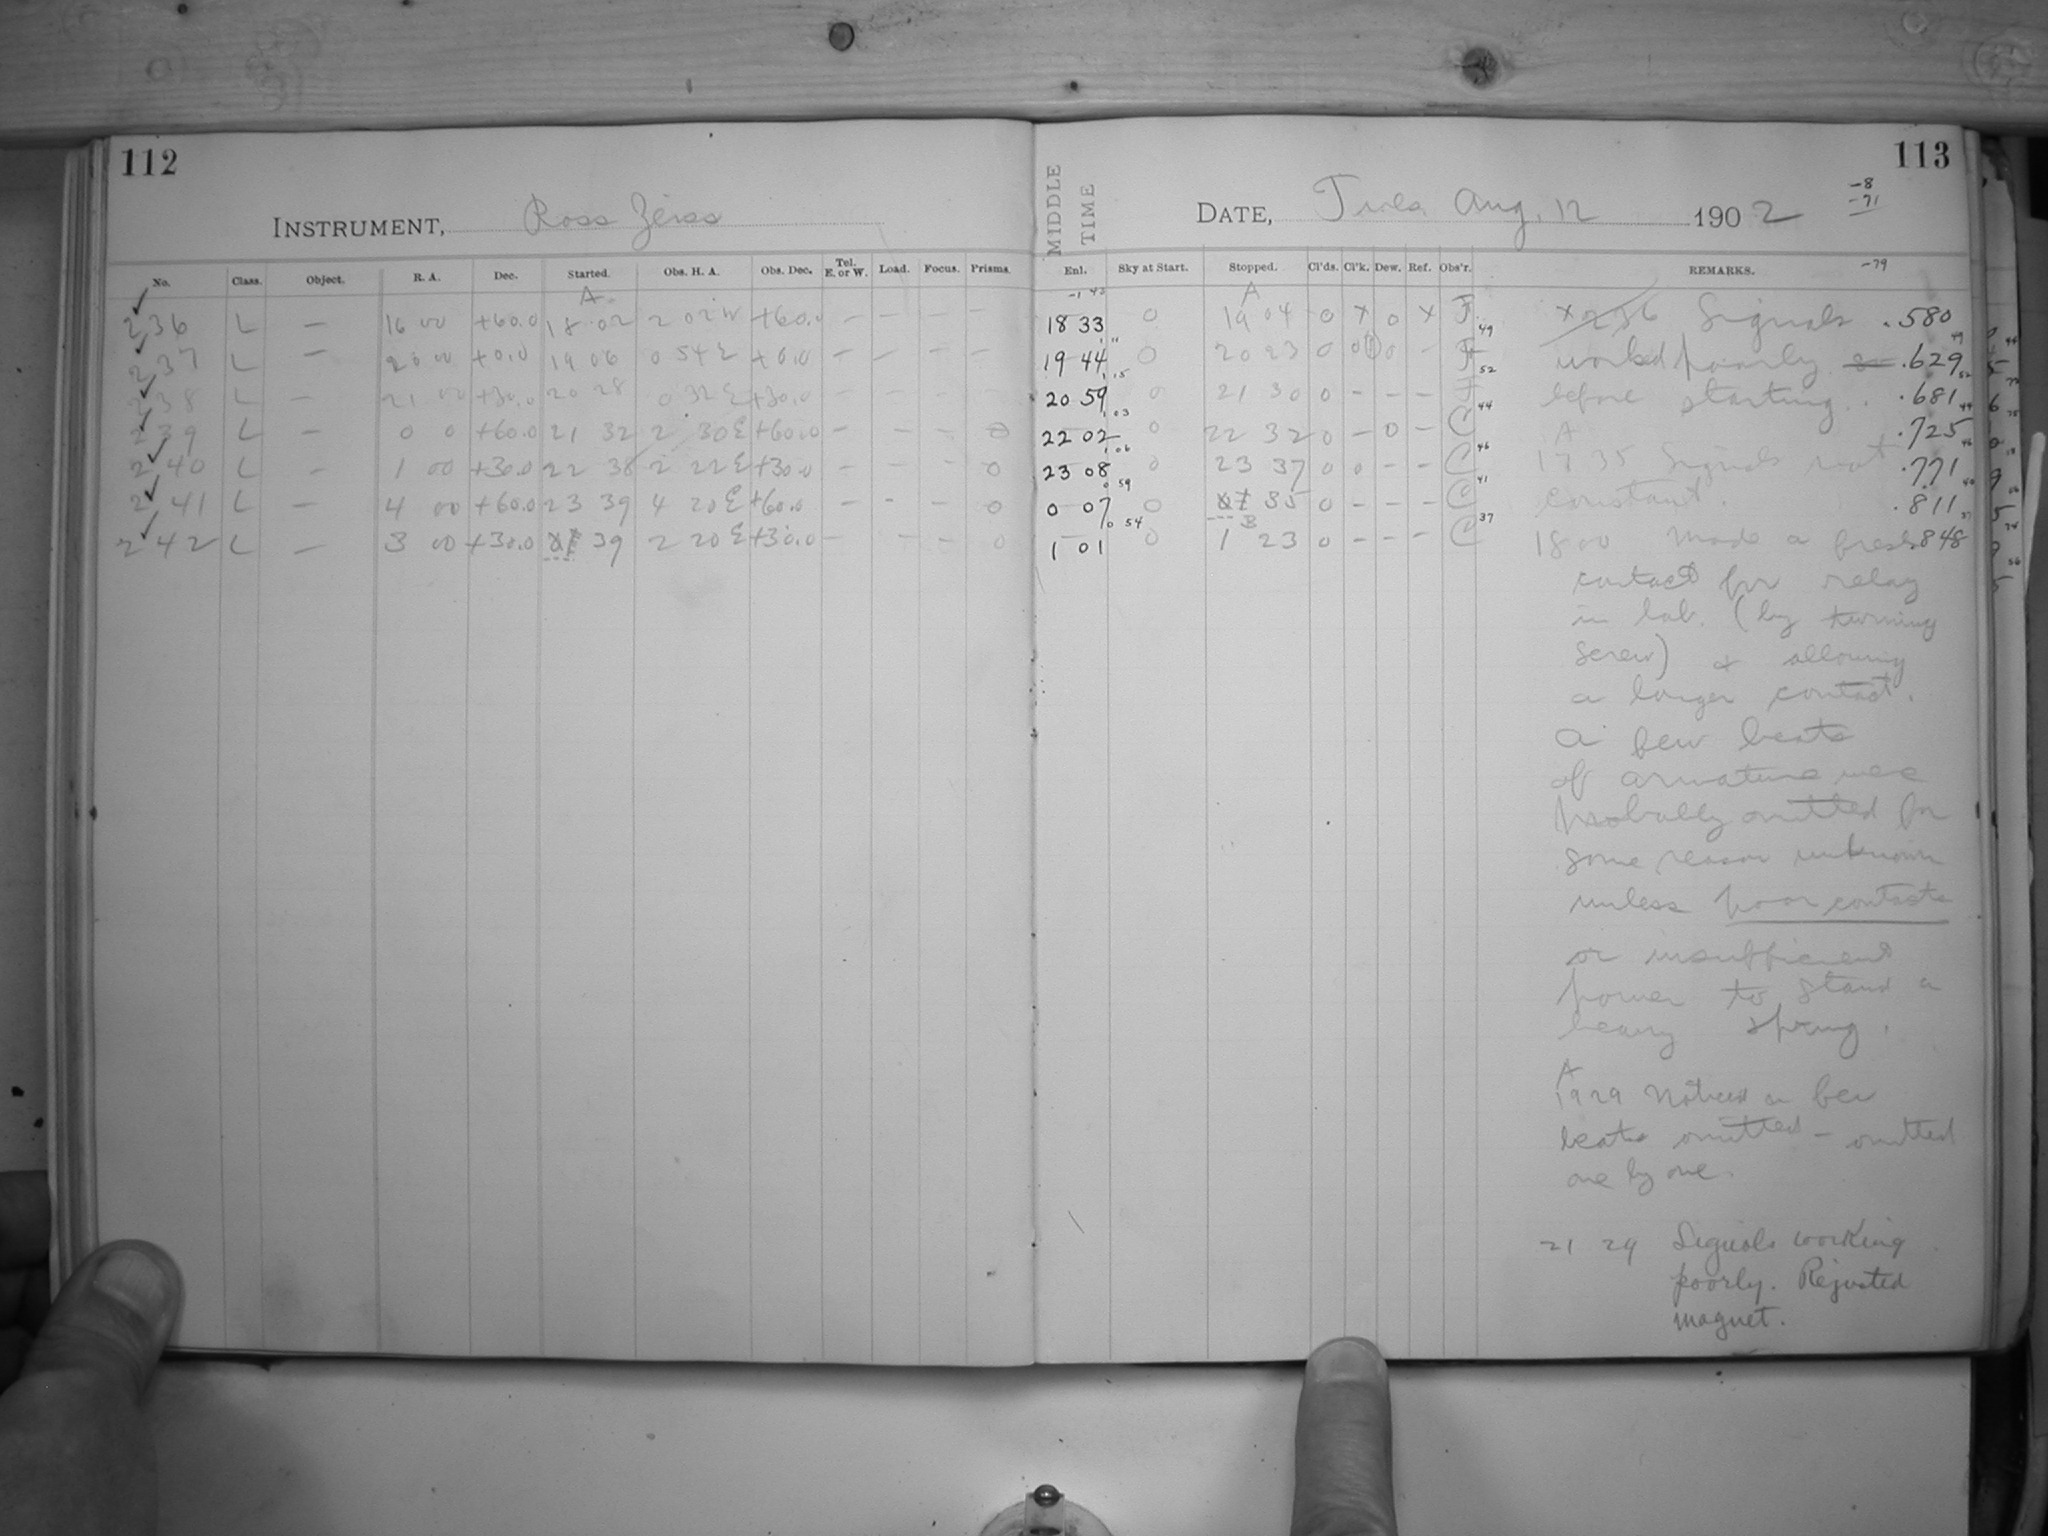 112
INSTRUMENT, Ross Zeiss
No. Class. Object. R. A. Dec. Started. Obs. H. A. Obs. Dec. Tel. E. or W. Load. Focus. Prisms.
A
236 L — 16 00 +60.0 18 02 2 02 W +60.0 — — — —
237 L — 20 00 +0.0 19 06 0 54 E +0.0 — — — —
238 L — 21 00 +30.0 20 28 0 32 E +30.0 — — — —
239 L — 0 0 +60.0 21 32 2 30 E +60.0 — — — 0
240 L — 1 00 +30.0 22 38 2 22 E +30.0 — — — 0
241 L — 4 00 +60.0 23 39 4 20 E +60.0 — — — 0
242 L — 3 00 +30.0 39 2 20 E +30.0 — — — 0
113
MIDDLE TIME
DATE, Tues. Aug. 12 1902
-8
-71
-79
Enl. Sky at Start. Stopped. Cl'ds. Cl'k. Dew. Ref. Obs'r. REMARKS.
A
18 33 0 19 04 0 x 0 x F 49 .580
19 44 0 20 23 0 0 — F 52 .629
20 59 0 21 30 0 — — — F 44 .681
22 02 0 22 32 0 — 0 — C 46 .725
23 08 0 23 37 0 0 — — C 41 .771
0 07 0 35 0 — — — C 37 .811
B
1 01 0 1 23 0 — — — C 848
x 236 Signals
worked poorly
before starting.
A
17 35 Signals not
constant.
18 00 Made a fresh
contact for relay
in lab. (by turning
screw) & allowing
a longer contact.
A few beats
of armature were
probably omitted for
some reason unknown
unless poor contacts
or insufficient
power to stand a
heavy spring.
A
19 29 Noticed a few
beats omitted — omitted
one by one.
21 29 Signals working
poorly. Rejusted
magnet.